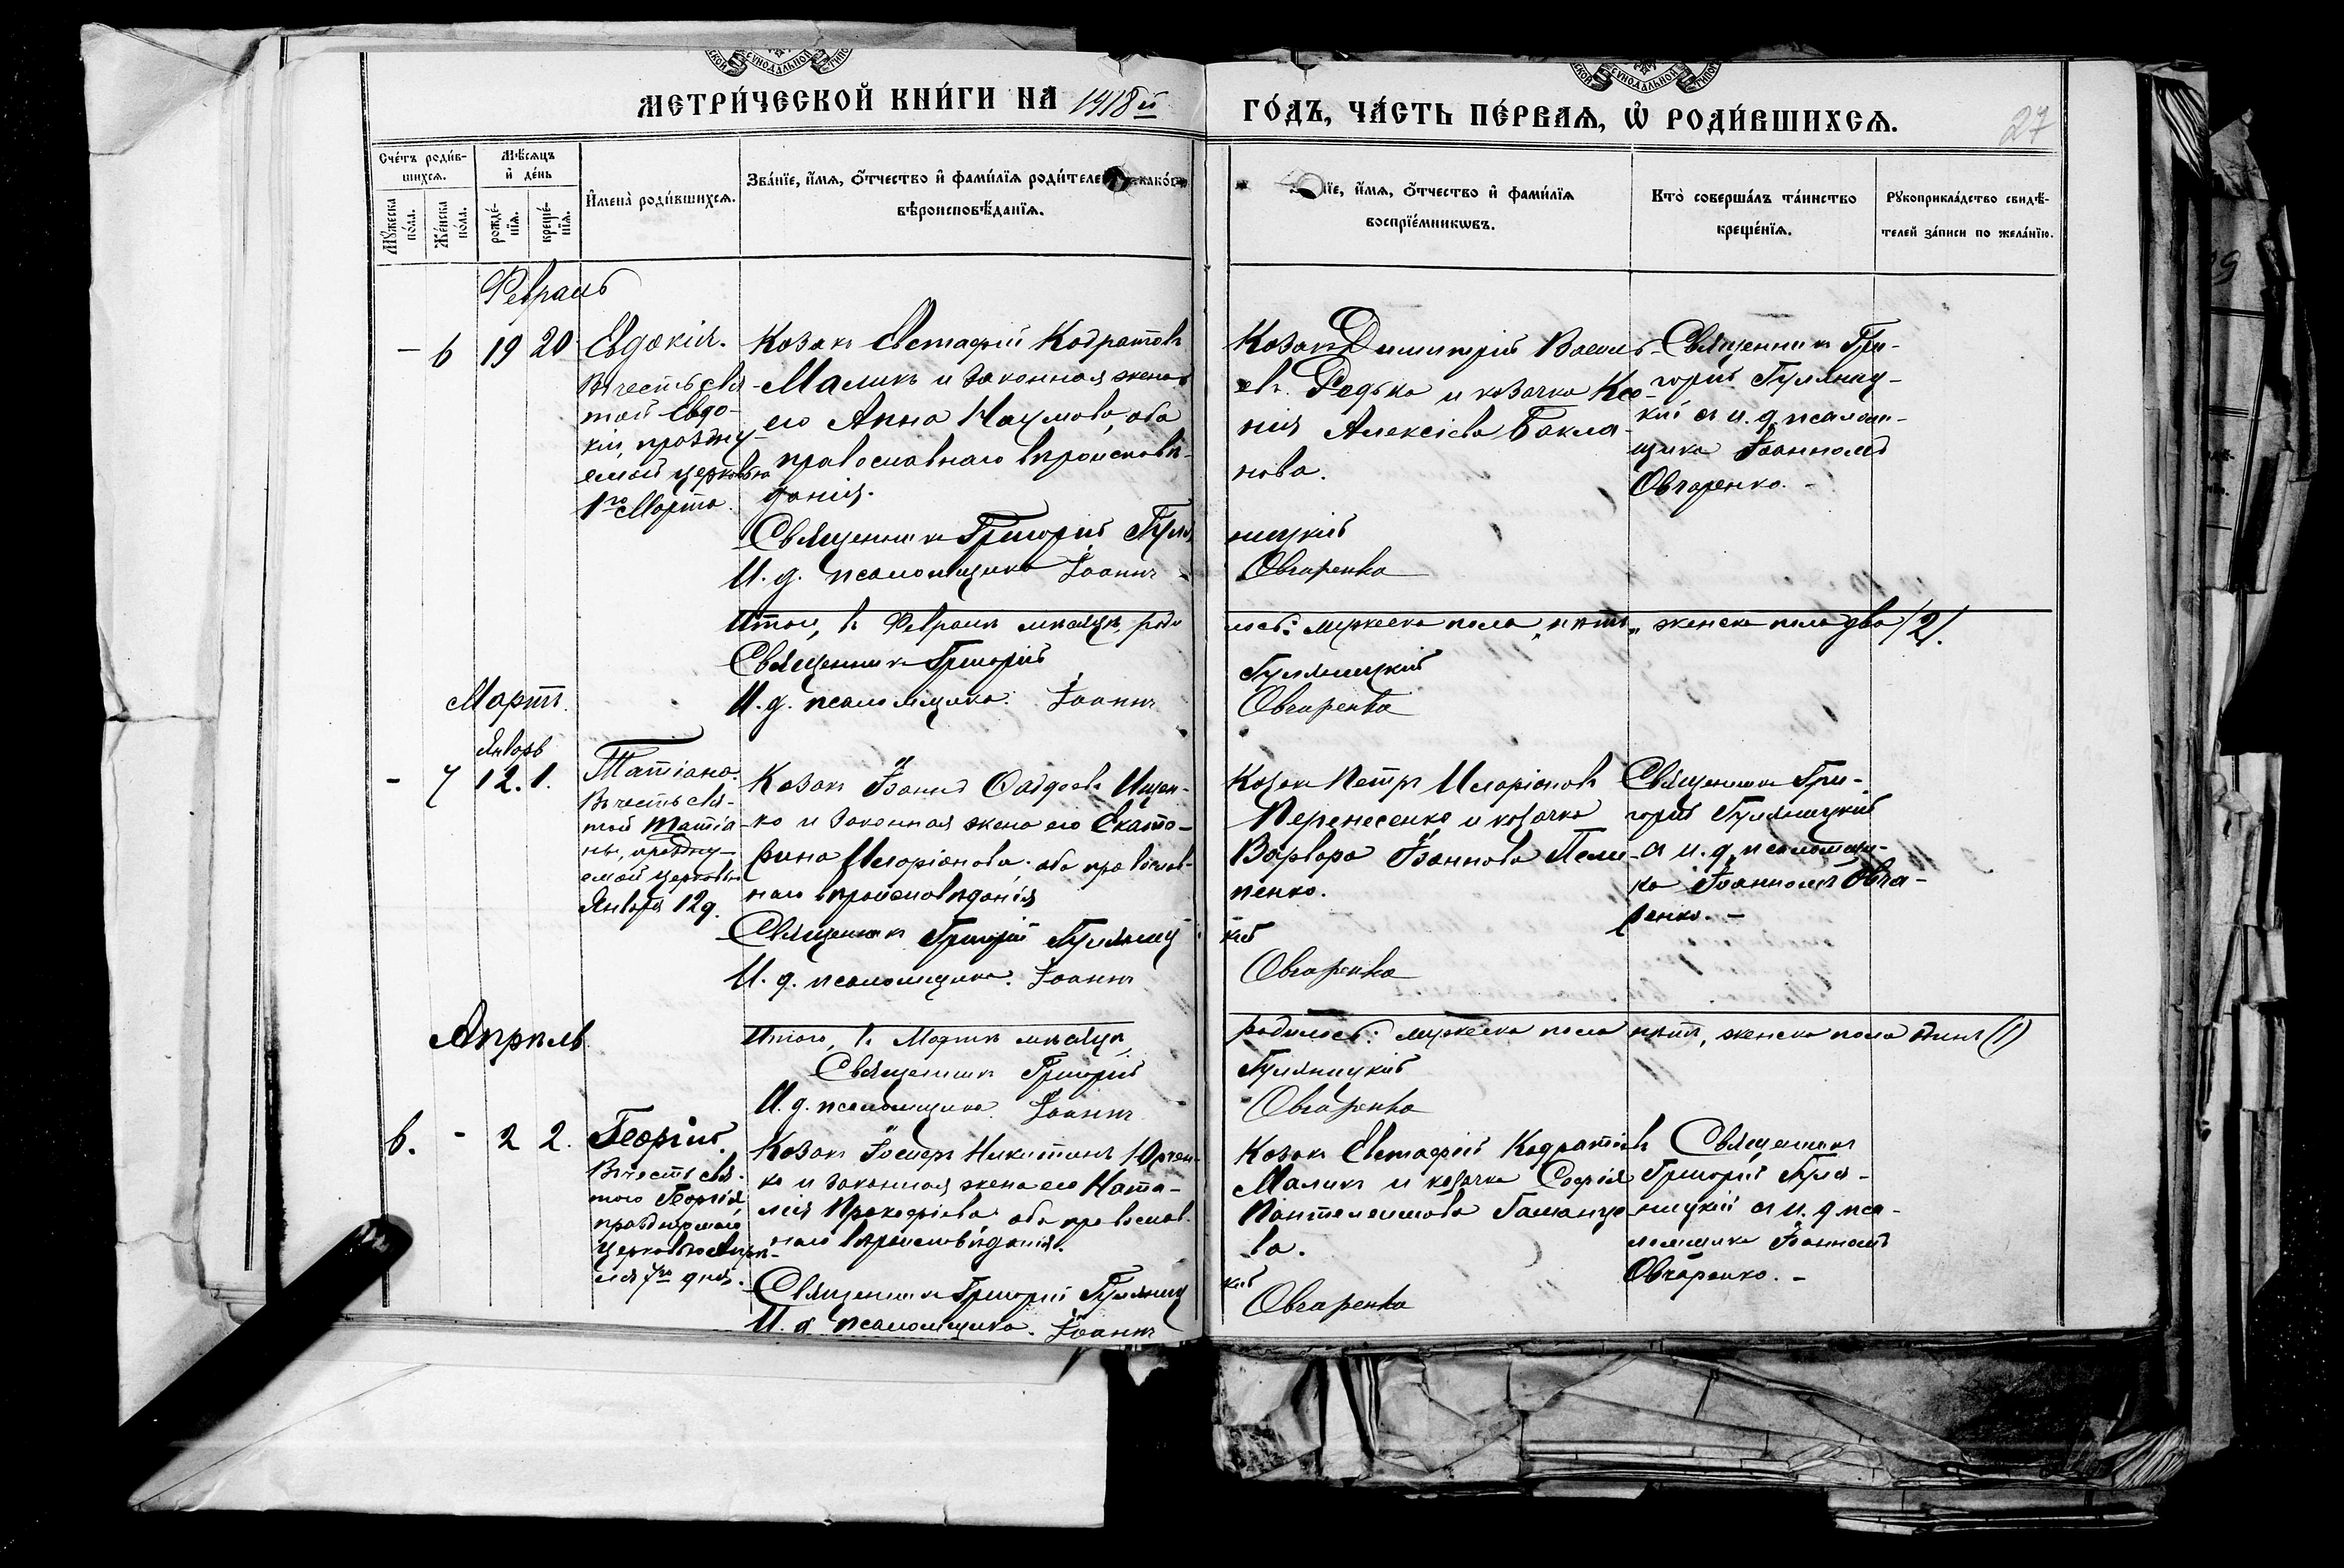 МЕТРИ́ЧЕСКОЙ КНИ́ГИ НА 1918й
ГО́ДЪ, ЧА́СТЬ ПЕ́РВАЯ, Ѡ РОДИ́ВШИХСЯ.
27
Сче́тъ роди́в-
шихся.
Мѣ́сяцъ
и де́нь
Мꙋ́жеска
по́ла.
Же́нска
по́ла.
рожде́-
нїя.
креще́-
нїя.
Имена̀ роди́вшихся.
Зва́нїе, и́мя, о́тчество и фами́лїя роди́теле како́
вѣроисповѣ́данїя.
їе, и́мя, о́тчество и фами́лїя
воспрїе́мникѡвъ.
Кто̀ соверша́лъ та́инство
креще́нїя.
Рꙋкоприкла́дство свидѣ́-
телей за́писи по жела́нїю.
Февраль
- 6 19 20
Евдокія.
Въ честь свя-
той Евдо-
кіи, праздну-
емой церковью
1го Марта.
Козакъ Евстафій Кодратовъ
Маликъ и законная жена
его Анна Наумова, оба
православнаго вѣроисповѣ-
данія.
Священникъ Григорій Гуля
И. д. псаломщика Іоаннъ
Козакъ Димитрій Василь-
евъ Редька и козачка Ксе-
нія Алексіева Бакла-
нова.
ницкій
Овчаренко
Священникъ Гри-
горій Гуляниц-
кій съ и. д. псалом-
щика Іоанномъ
Овчаренко. -
Итого, въ Февралѣ мѣсяцѣ, роди
лось: мужеска пола „нѣтъ„ женска пола два /2/.
Священникъ Григорій
Гуляницкій
И. д. псаломщика: Іоаннъ
Овчаренко
Мартъ.
Январь
- 7 12. 1.
Татіана.
Въ честь свя-
той Татіа-
ны, праздну-
емой церковью
Января 12 д.
Козакъ Іоаннъ Фаддеевъ Ищен-
ко и законная жена его Екате-
рина Иларіонова, оба православ-
наго вѣроисповѣданія
Священникъ Григорій Гуляниц
И. д. псаломщика. Іоаннъ
Козакъ Петръ Иларіоновъ
Перенесенко и козачка
Варвара Іоаннова Пели-
пенко.
кій
Овчаренко
Священникъ Гри-
горій Гуляницкій
съ и. д. псаломщи-
ка Іоанномъ Овча-
ренко. -
Итого, въ Мартѣ мѣсяцѣ,
родилось: мужеска пола нѣтъ, женска пола одинъ (1)
Священникъ Григорій
Гуляницкій
И. д. псаломщика Іоаннъ
Овчаренко
Апрѣль
6. - 2 2.
Георгій.
Въ честь свя-
того Георгія,
празднуемаго
церковью Апрѣ-
ля 7го дня.
Козакъ Іосифъ Никитинъ Юрчен-
ко и законная жена его Ната-
лія Прокофіева, оба православ-
наго вѣроисповѣданія.
Священникъ Григорій Гуляниц
И. д. псаломщика. Іоаннъ
Козакъ Евстафій Кодратовъ
Маликъ и козачка Софія
Пантелеимова
ва.
кій
Овчаренко
Священникъ
Григорій Гуля-
ницкій съ и. д. пса-
ломщика Іоанномъ
Овчаренко. -